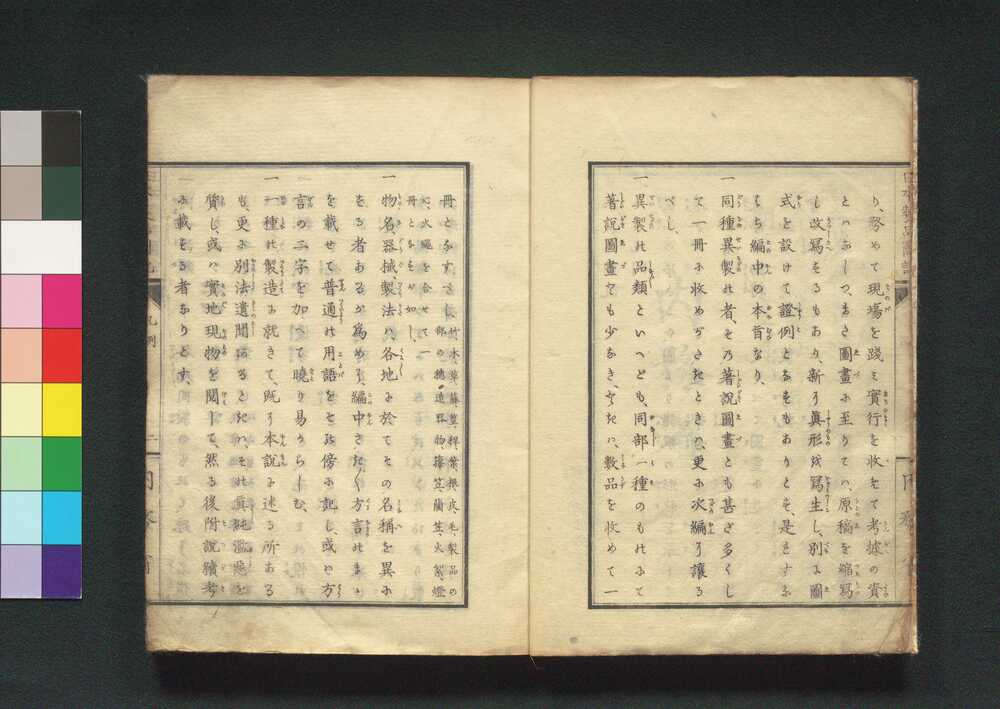 り、務めて現場を踐ミ實行を收めて考據の資
とハなしつ、まさ圖畫に至りてハ、原稿を縮寫
し改寫するもあり、新に眞形を寫生し、別に圖
式を設けて證例となすもありとす、是をすな
もち編中の本旨なり、
一同種異製の者、その著説圖畫とも甚ざ多くし
て一冊に收めがたきときハ、更に次編に讓る
べし、
一異製の品類といへども、同部一種のものにて
著説圖畫でも少なきハ、數品を收めて一
冊となす、
部の
火繩を合せて一
冊となすが如し、
一物名、器械、製法ハ、各地に於てその名稱を異に
する者あるが爲めに、編中さた方言
を載せて普通の用語をその傍に記し、或ハ方
言の二字を加へて曉り易からしむ、
一一種の製造に就きて、既に本説に述る所ある
も、更に別法遺聞あるときハ、その眞純濫惡を
質し、或ハ實地現物を閲して、然る後附説續考
に載する者なりとす、
凡例